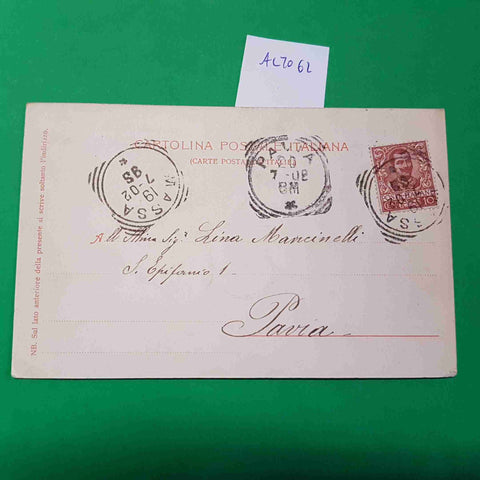 AL7062
CARTOLINA POSTALE ITALIANA
(CARTE POSTALE D'ITALIE)
MASSA
19-02
7
9S
PAVIA
20
7-02
8M
MASSA
10
All' Sigª Lina Mancinelli
S. Epifanio 1
Pavia
NB. Sul lato anteriore della presente si scrive soltanto l'indirizzo.